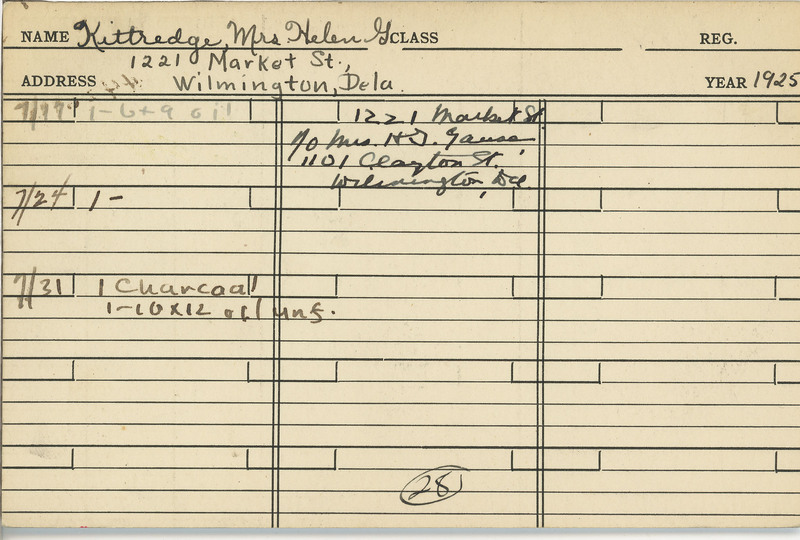 NAME Kittredge, Mrs Helen G CLASS REG.
1221 Market St.,
ADDRESS Wilmington, Dela. YEAR 1925
7/17 1-6x9 oil
1221 Market St
c/o Mrs. H.T. Gause
1101 Clayton St.
Wilmington, Del.
7/24 1 -
7/31 1 Charcoal
1-10x12 oil unf.
28